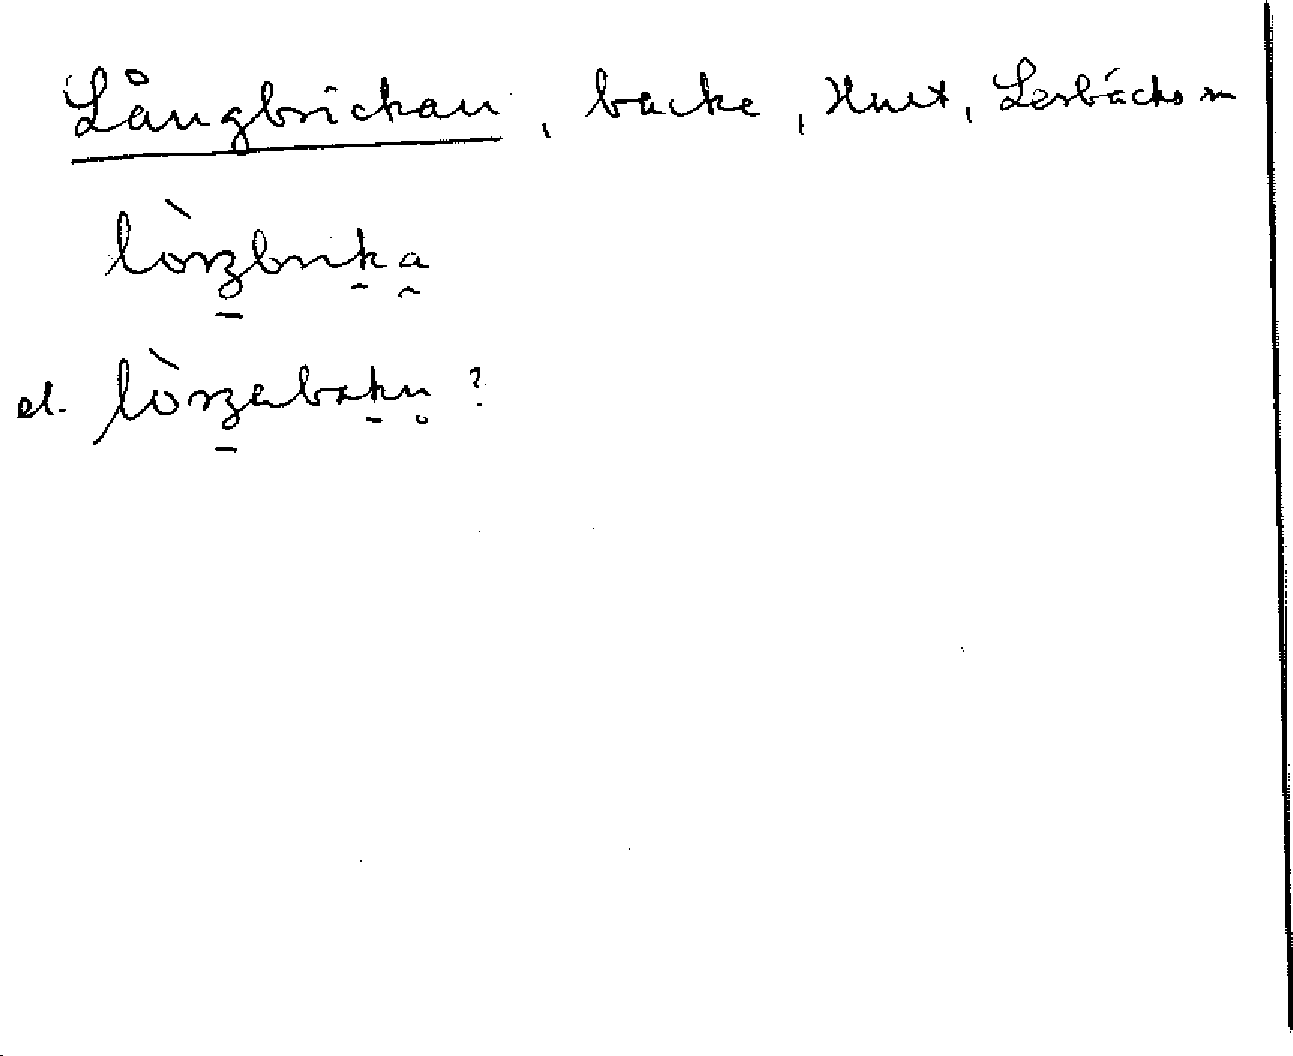 Långbrickan, backe, Hult, Lerbäcks sn
lòŋbrika
el. lòŋabakn ?